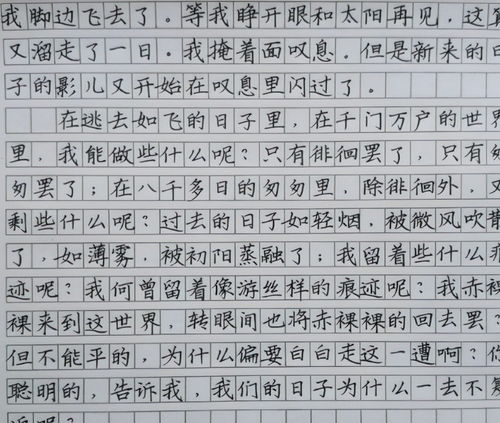 我脚边飞去了。等我睁开眼和太阳再见，这
又溜走了一日。我掩着面叹息。但是新来的日
子的影儿又开始在叹息里闪过了。
在逃去如飞的日子里，在千门万户的世界
里，我能做些什么呢？只有徘徊罢了，只有匆
匆罢了；在八千多日的匆匆里，除徘徊外，又
剩些什么呢？过去的日子如轻烟，被微风吹散
了，如薄雾，被初阳蒸融了；我留着些什么痕
迹呢？我何曾留着像游丝样的痕迹呢？我赤裸
裸来到这世界，转眼间也将赤裸裸的回去罢？
但不能平的，为什么偏要白白走这一遭啊？你
聪明的，告诉我，我们的日子为什么一去不复